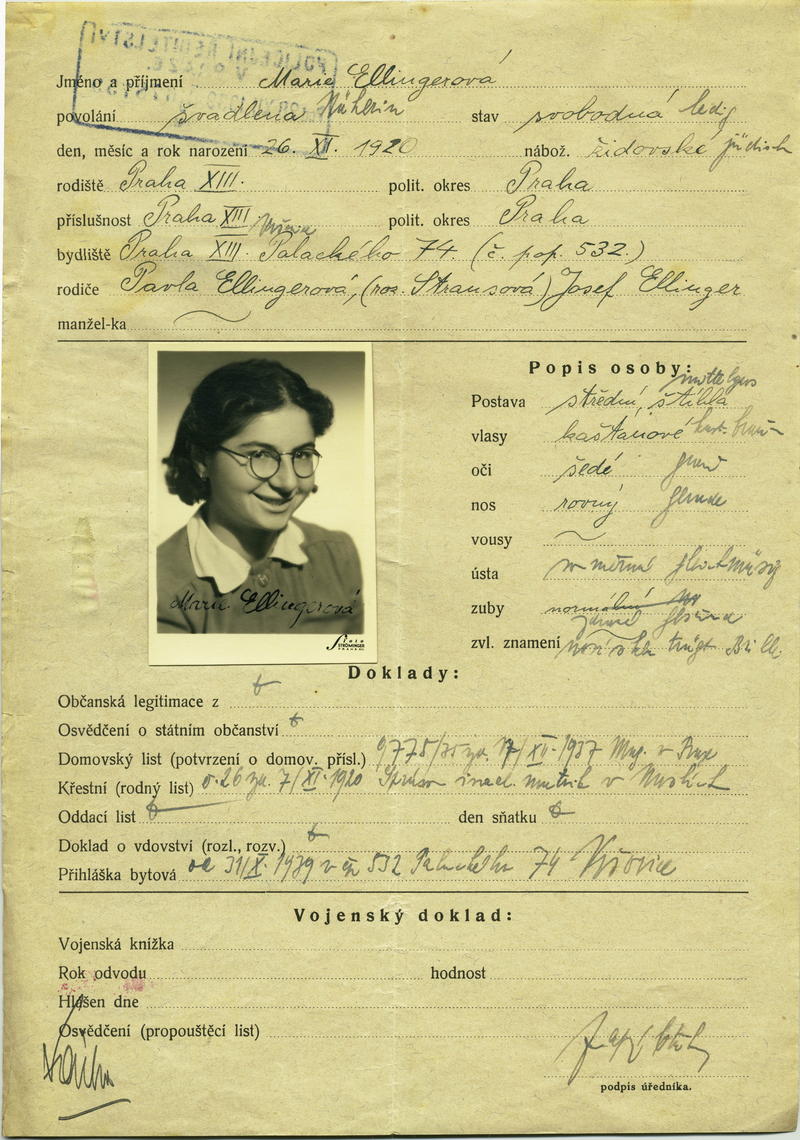 POLICEJNÍ ŘEDITELSTVÍ
V PRAZE
Jméno a příjmení Marie Ellingerová
povolání švadlena Näherin stav svobodná ledig
den, měsíc a rok narození 26. XII. 1920 nábož. židovské jüdisch
rodiště Praha XIII. polit. okres Praha
příslušnost Praha XIII polit. okres Praha
bydliště Praha XIII. Palackého 74. (č. pop. 532.)
rodiče Pavla Ellingerová, (roz. Strausová) Josef Ellinger
manžel-ka
Popis osoby:
Postava střední, štíhlá
vlasy kaštanové
oči šedé
nos rovný
vousy
ústa
zuby normální
zvl. znamení
Marie Ellingerová
Foto
STRÖMINGER
Doklady:
Občanská legitimace z
Osvědčení o státním občanství
Domovský list (potvrzení o domov. přísl.) 9775/ XII 1937 Mag. v
Křestní (rodný list) 7/XI 1920 v
Oddací list den sňatku
Doklad o vdovství (rozl., rozv.)
Přihláška bytová 31/X. 1939 v čp 532 74 Vršovice
Vojenský doklad:
Vojenská knížka
Rok odvodu hodnost
Hlášen dne
Osvědčení (propouštěcí list)
podpis úředníka.